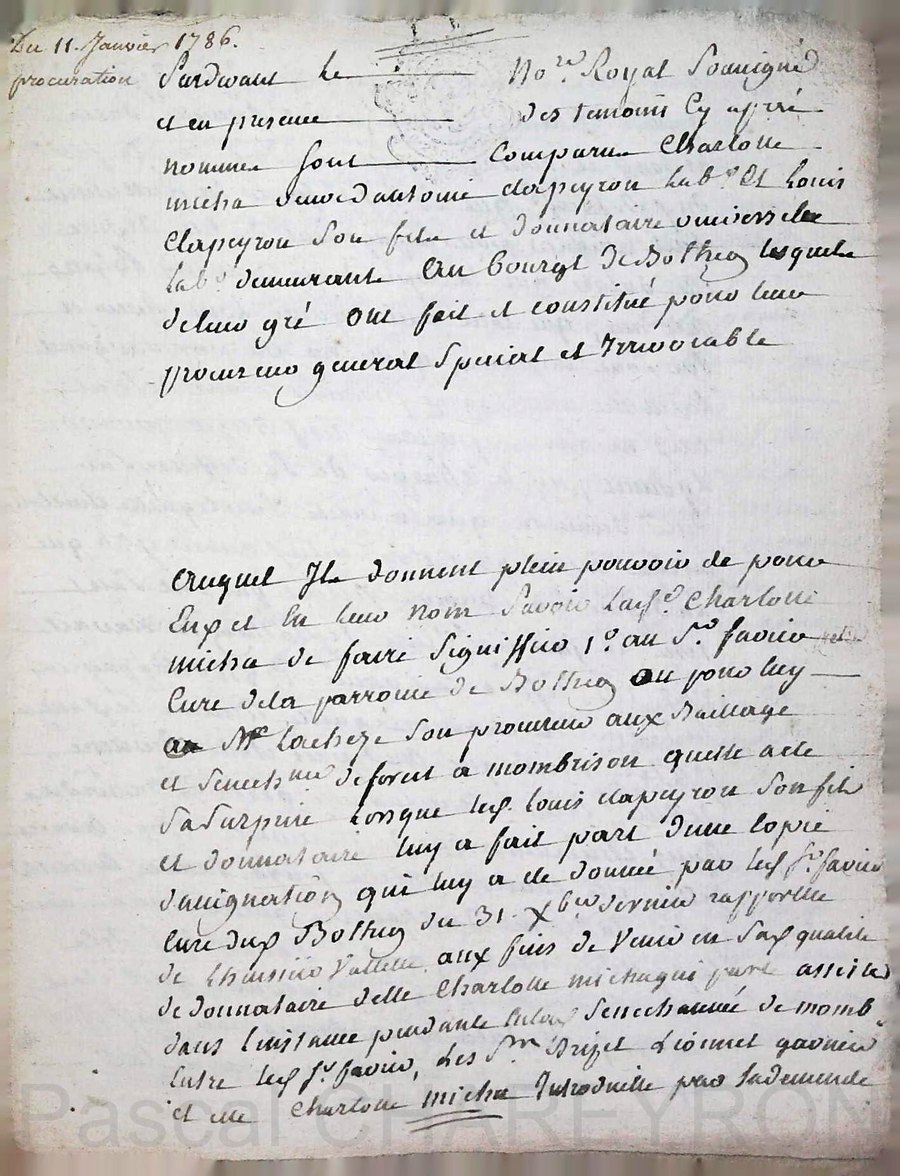 Du 11. Janvier 1786.
procuration
Pardevant le No.re Royal Soussigné
et en presence des temoins cy apprés
nommes sont Comparus Charlotte
micha veuve d'antoine clapeyron lab.r Et Louis
Clapeyron Son fils et donnataire universelle
lab.r demeurants au bourgt de Bothéon lesquels
de leur gré ont fait et constitué pour leur
procureur general Special et Irrevocable
auquel Ils donnent plein pouvoir de pour
Eux et En leur nom Savoir lad.e Charlotte
micha de faire Signiffier 1.o au S.r favier
Curé de la parroisse de Bothéon ou pour luy
a M.e Lacheze Son procureur aux Baillage
et Senech.ée de foret a mombrison quelle a été
Sa Surprise lorsque led. Louis clapeyron Son fils
et donnataire luy a fait part d'une copie
d'assignation qui luy a été donnée par led. S.r favier
Curé dud. Bothéon du 31. Xbre dernier rapportée
de L'huissier Vallette aux fins de Venir en Sad. qualité
de donnataire d'elle Charlotte micha qui assister
dans l'instance pendante en lad. Senechaussée de momb.
Entre led. S.r favier, Les S.rs Brizet Lionnet garnier
et elle Charlotte micha Introduitte par la demande
Pascal CHAREYRON